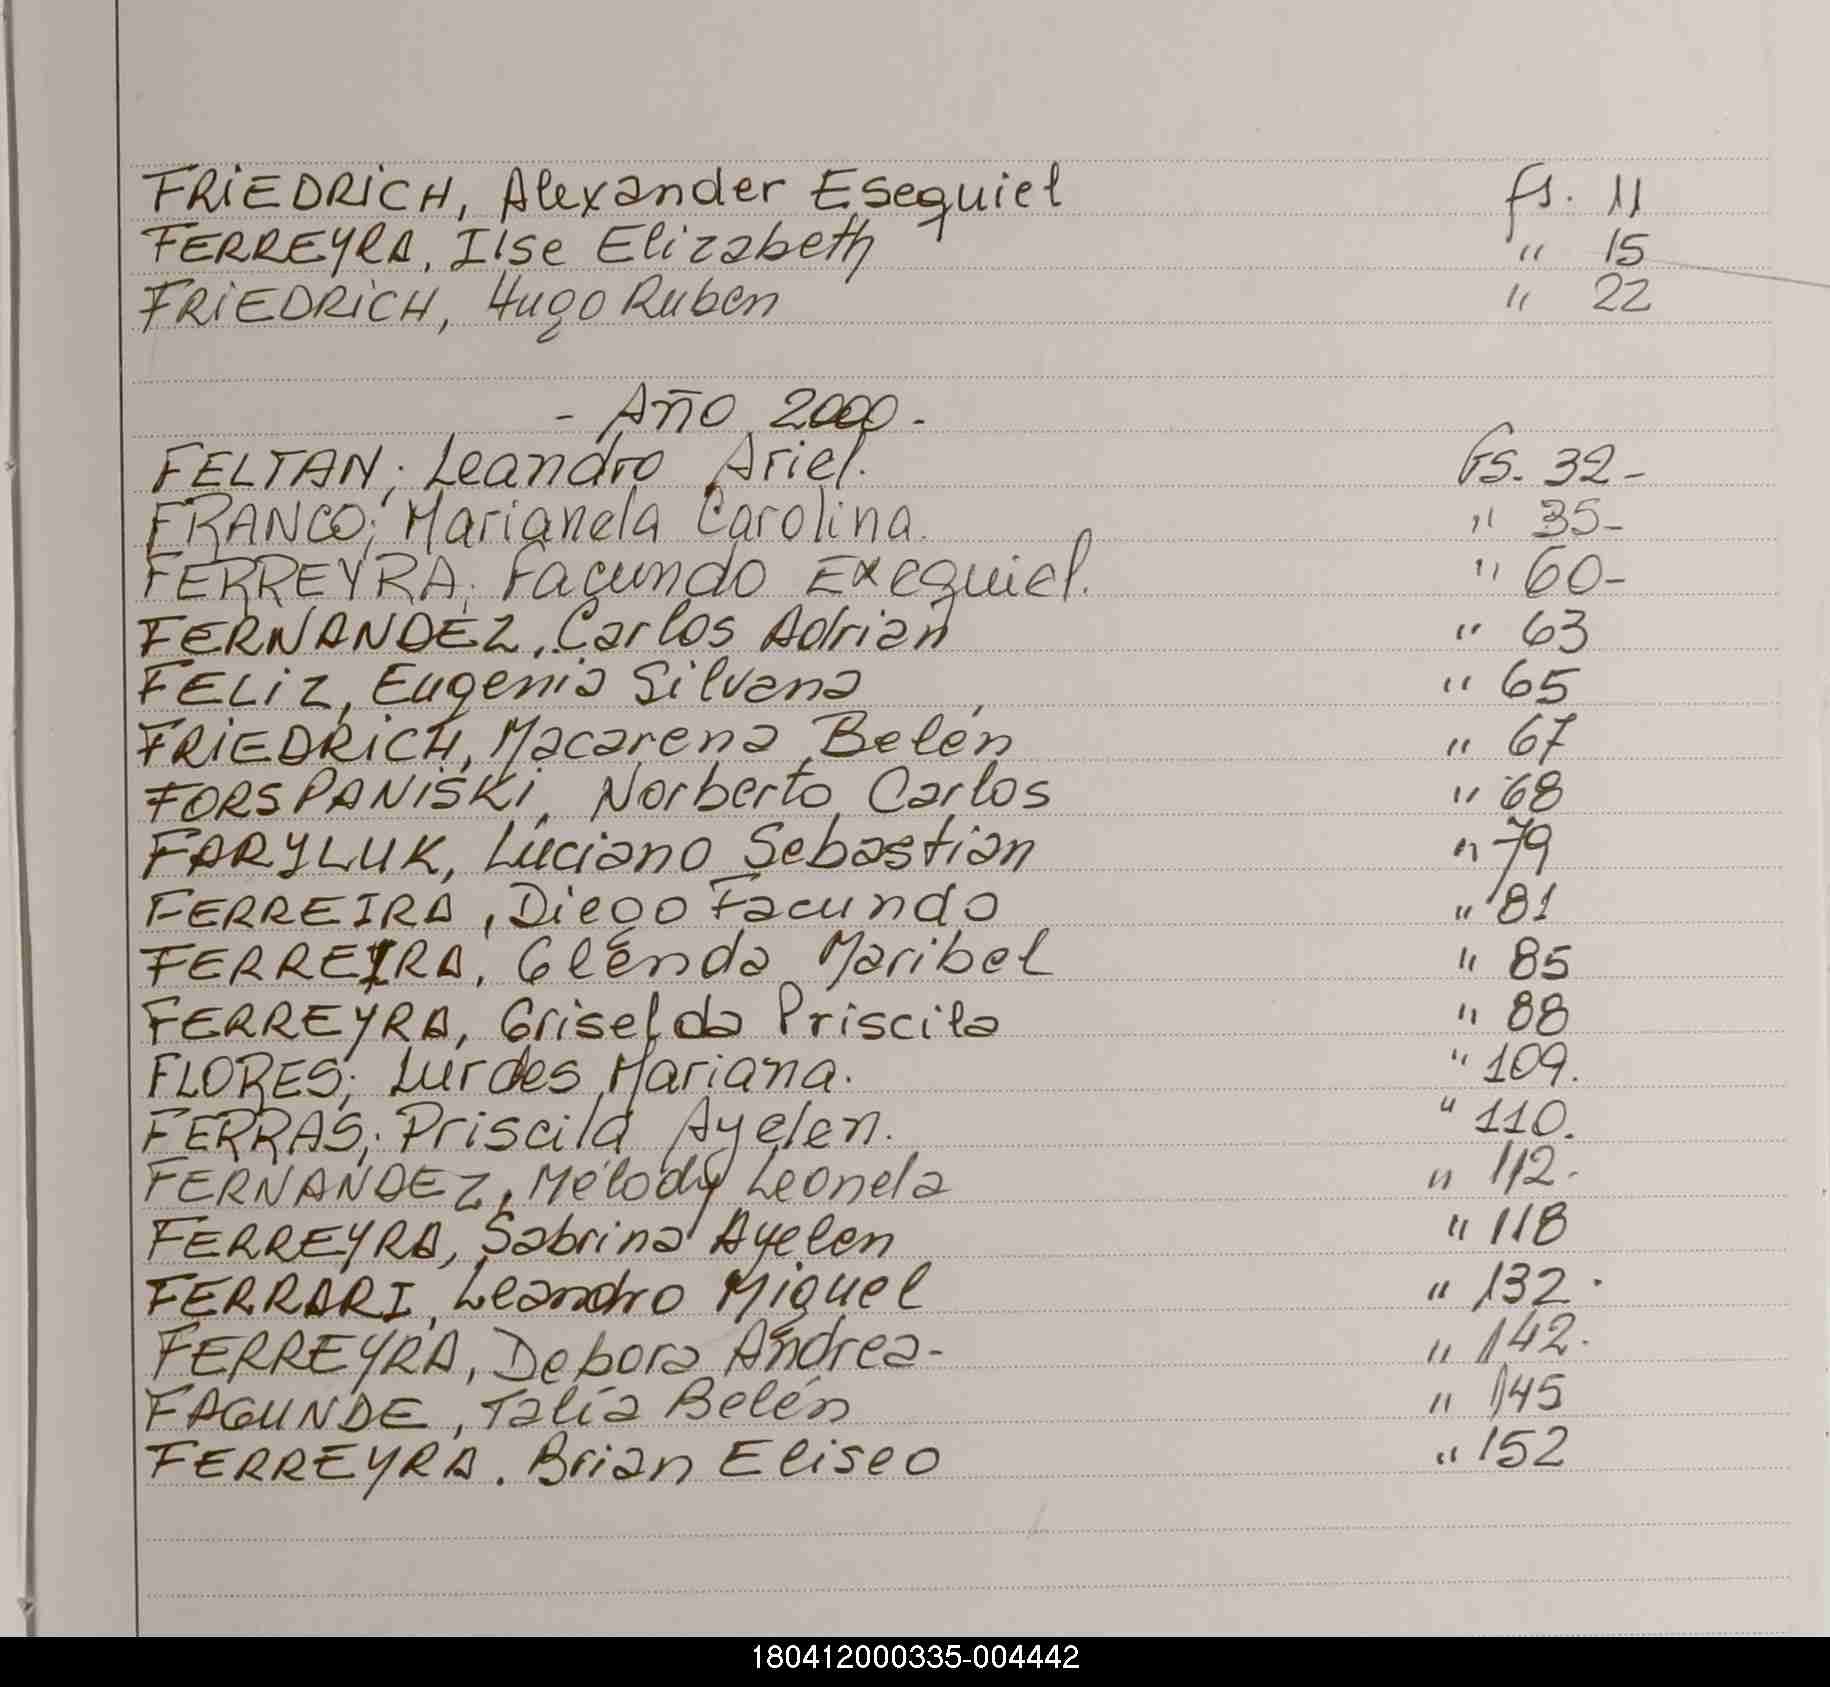 FRIEDRICH, Alexander Esequiel fs. 11
FERREYRA, Ilse Elizabeth " 15
FRIEDRICH, Hugo Ruben " 22
- Año 2000 -
FELTAN; Leandro Ariel. Fs. 32-
FRANCO; Marianela Carolina. " 35-
FERREYRA; Facundo Exequiel. " 60-
FERNANDEZ, Carlos Adrian " 63
FELIZ, Eugenia Silvana " 65
FRIEDRICH, Macarena Belén " 67
FORSPANISKI, Norberto Carlos " 68
FARYLUK, Luciano Sebastian " 79
FERREIRA, Diego Facundo " 81
FERREIRA, Glenda Maribel " 85
FERREYRA, Griselda Priscila " 88
FLORES; Lurdes Mariana. " 109.
FERRAS; Priscila Ayelen. " 110.
FERNANDEZ, Mélody Leonela " 112-
FERREYRA, Sabrina Ayelen " 118
FERRARI, Leandro Miguel " 132.
FERREYRA, Debora Andrea- " 142.
FAGUNDE, Talía Belén " 145
FERREYRA. Brian Eliseo " 152
180412000335-004442